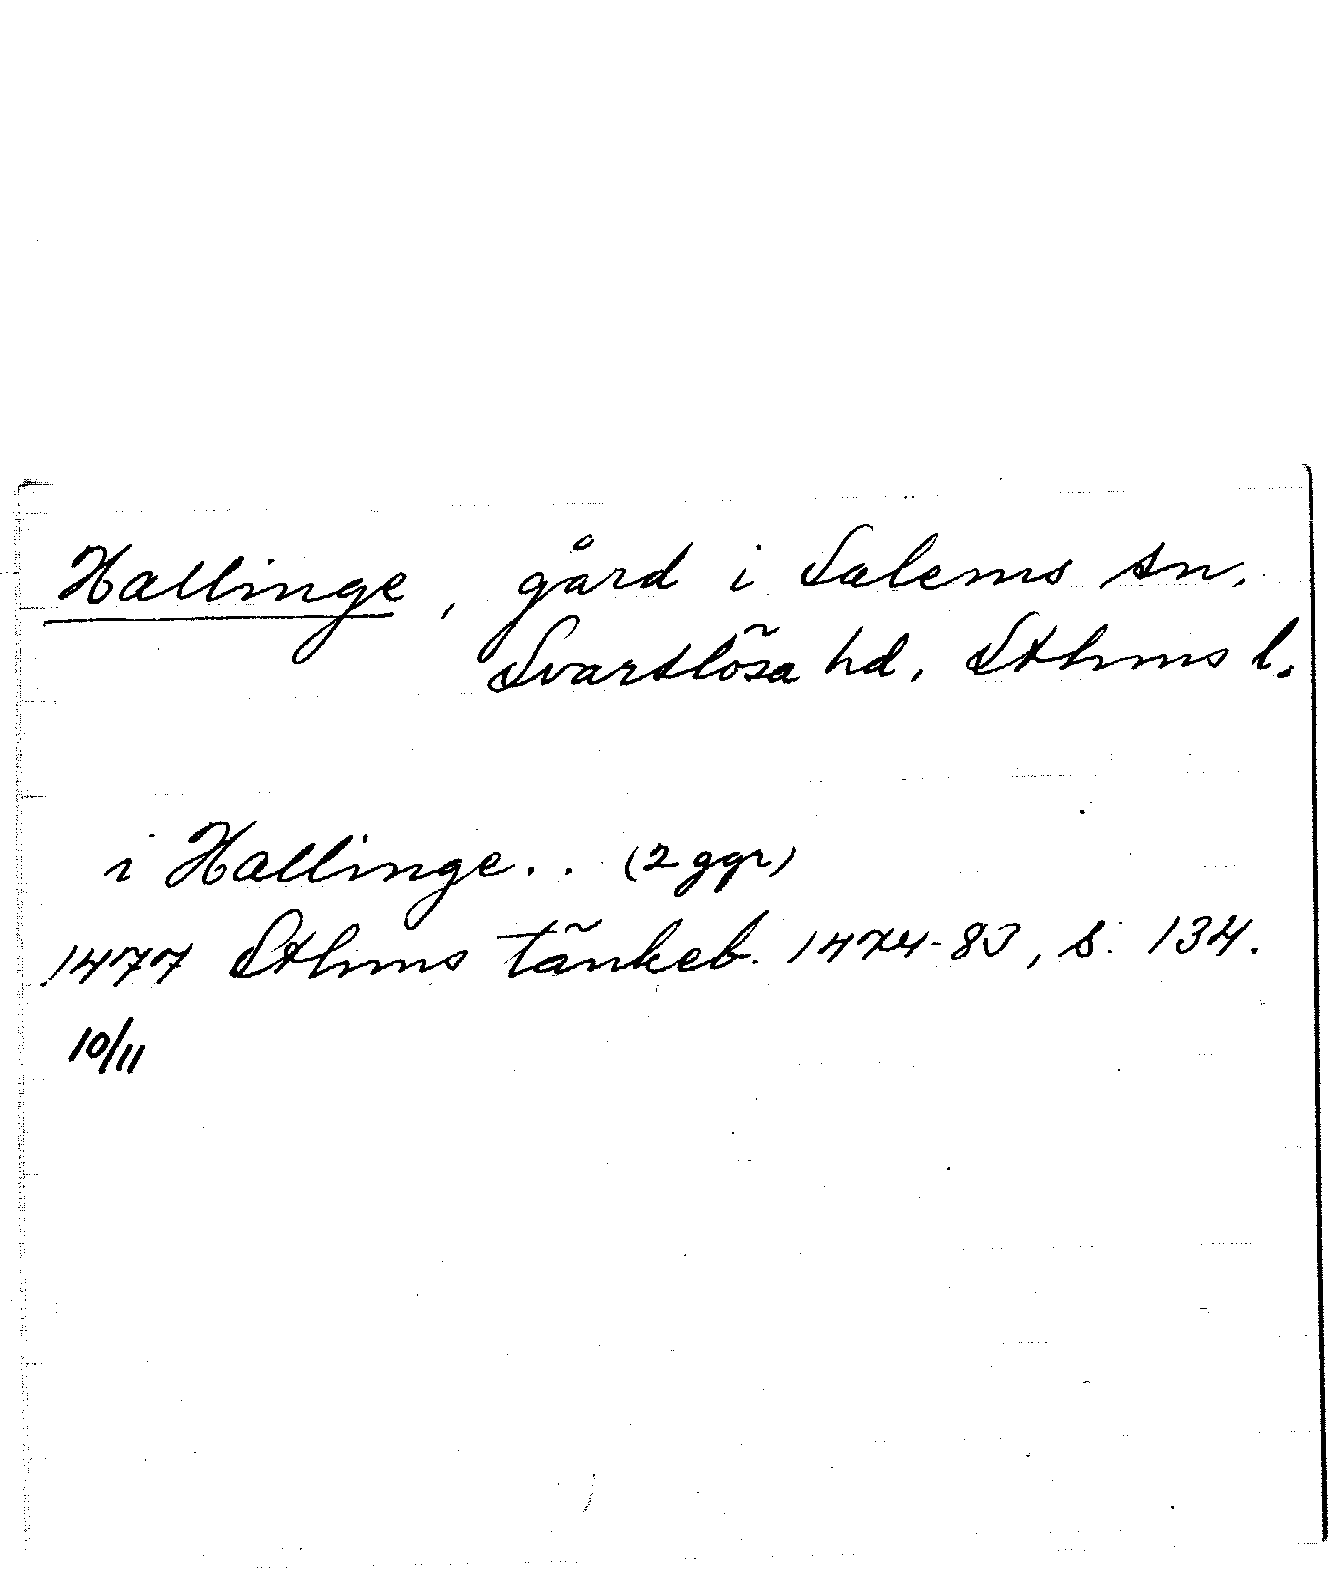 Hallinge, gård i Salems sn.
Svartlösa hd, Sthms l.
i Hallinge.. (2 ggr)
1477 Sthms tänkeb. 1474-83, s. 134.
10/11